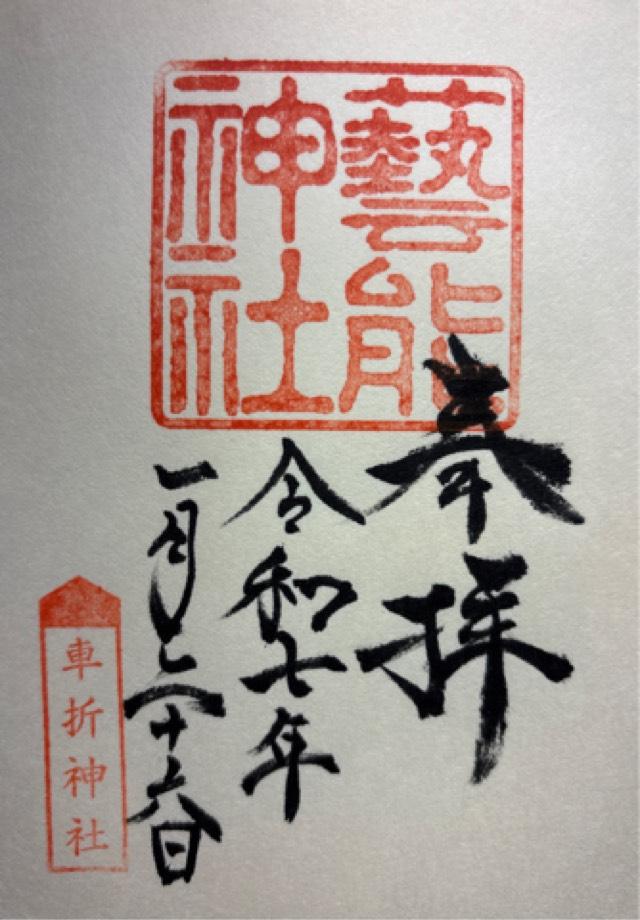 藝能
神社
奉拝
令和七年
一月二十六日
車折神社